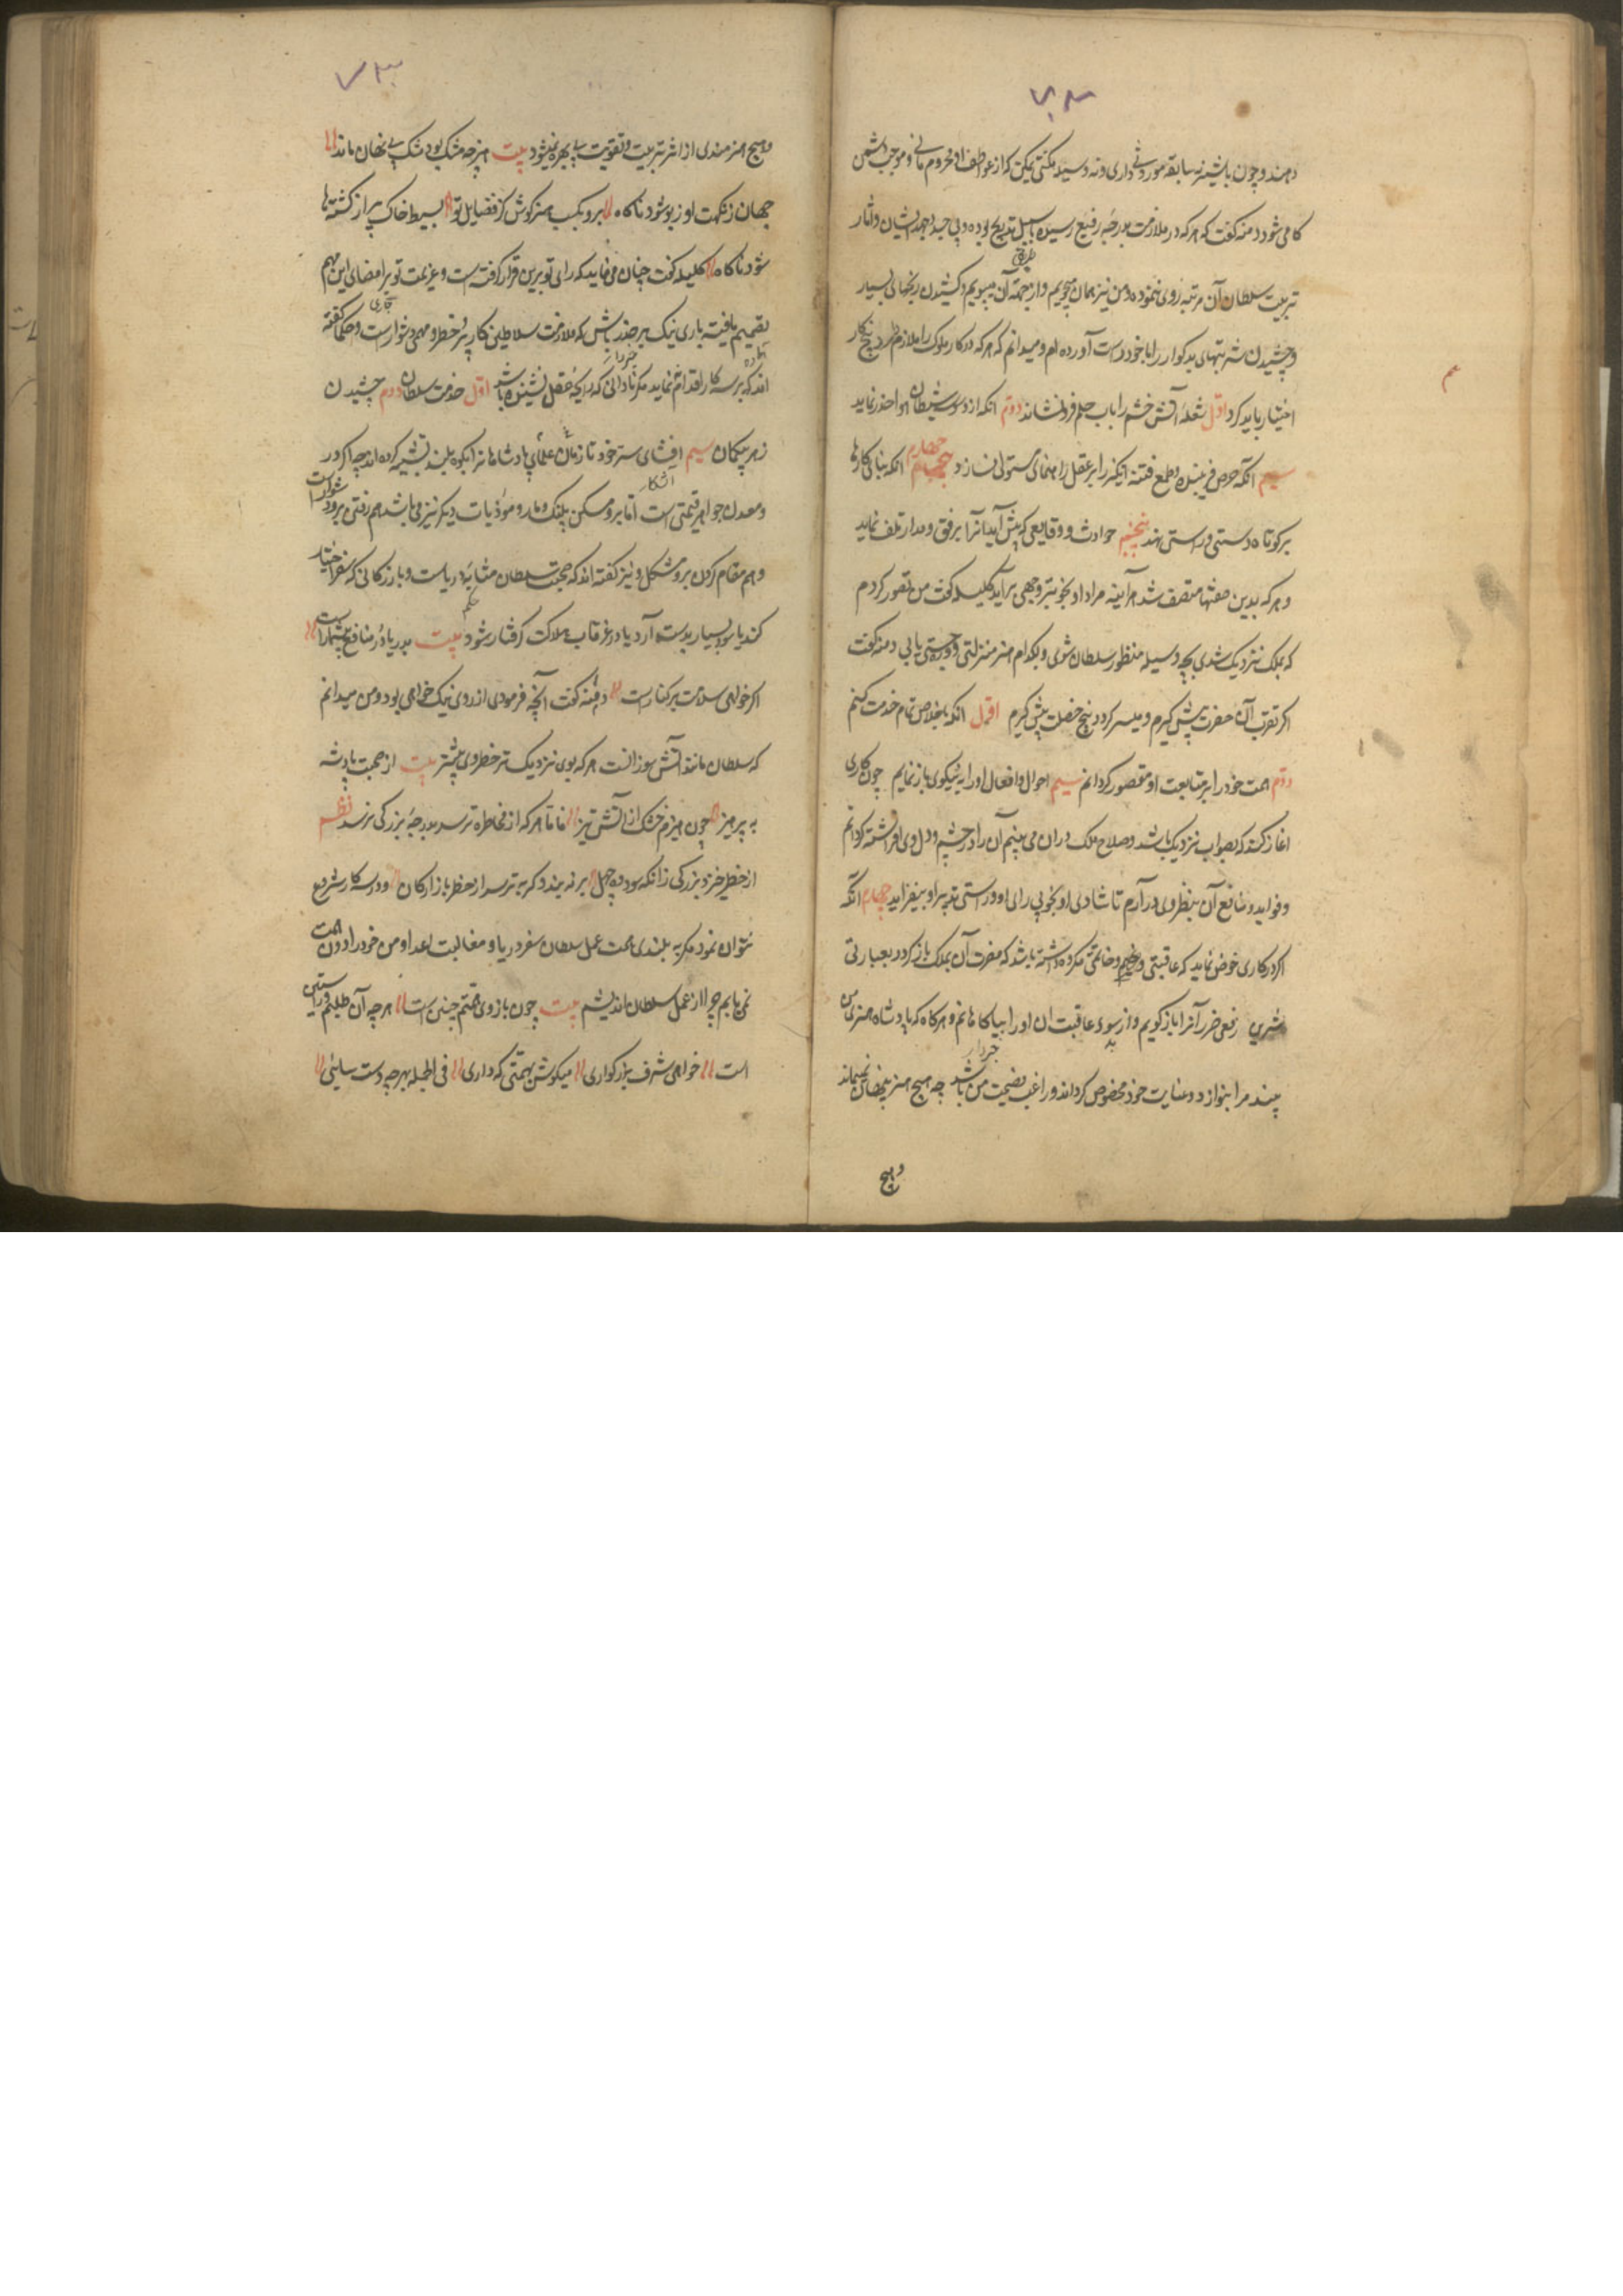 دهند و چون پیشینه سابقه موروثی داری و نه وسیله مکنتی یمکن که از عواطف او محروم مانی و موجب دشمن
کامی شود دمنه گفت که هر که در ملازمت بدرجه رفیع رسیده بر سبیل تدریج بوده و بی جد و جهد ایشان و آثار
تربیت سلطان آن مرتبه روی ننموده و من نیز همان میجویم و از جهة آن میپویم و کشیدن رنجهای بسیار
و چشیدن شربتهای بدگوار را با خود راست آورده ام و میدانم که هر که درگاه ملوک را ملازم گردد پنج کار
اختیار باید کرد اول شعله آتش خشم را باب حلم فرو نشاند دوم آنکه از وسوسه شیطان هوا حذر نماید
سیم آنکه حرص فریبنده و طمع فتنه انگیز را بر عقل راهنمای مستولی نسازد چهارم آنکه بنای کارها
بر کوتاه دستی و راستی نهد پنجم حوادث و وقایعی که پیش آید آنرا برفق و مدارا تلف نماید
و هر که بدین صفتها متصف شد هرآینه مراد او بخوبترو جهی برآید کلیله گفت من تصور کردم
که بملک نزدیک شدی بچه وسیله منظور سلطان شوی و بکدام هنر منزلتی و درجتی یابی دمنه گفت
اگر تقرب آن حضرت پیش گیرم و میسر گردد پنج خصلت پیش گیرم اول آنکه باخلاص تمام خدمت کنم
دوم همت خود را بر متابعت او مقصور گردانم سیم احوال و افعال او را به نیکوی باز نمایم چهارم چون کاری
آغاز کند که بصواب نزدیک باشد و صلاح ملک دران می بینم آن را در چشم و دل وی آراسته گردانم
و فواید و منافع آن بنظر وی در آرم تا شادی او بخوبی رای او و راستی تدبیر او بیفزاید چهارم آنکه
اگر در کاری خوض نماید که عاقبتی وخیم و خاتمتی مکروه داشته باشد که مضرت آن بملک باز گردد بعبارتی
شیرین و رفقی ضرر آنرا باز گویم و از سوء عاقبت آن او را بیاگاهانم و هرگاه که پادشاه هنرهای من
بیند مرا بنوازد و عنایت خود مخصوص گرداند و راغب نصیحت من باشد چه هیچ هنر پنهان نمیماند
و هیچ
و هیچ هنرمندی از اثر تربیت و تقویت بی بهره نمیشود بیت هنر چو مشک بود مشک کی نهان ماند
جهان ز نکهت او پر ز بو شود ناگاه برو بکسب هنر کوش کز فضایل تو بسیط خاک پر از گشته ها
شود ناگاه کلیله گفت چنان می نماید که رای تو برین قرار گرفته است و عزیمت تو بر امضای این مهم
تصمیم یافته باری نیک بر حذر باش که ملازمت سلاطین کاری پر خطر و مهمی دشوار است و حکما گفته
اند که بر سه کار اقدام ننماید مگر نادانی که رایحه عقل نشنیده باشد اول خدمت سلطان دوم چشیدن
زهر بگمان سیم افشای سر خود با زنان علما پادشاهان را بکوه بلند تشبیه کرده اند چه اگر در
و معدن جواهر قیمتی است اما برو مسکن پلنگ و مار و موذیات دیگر نیز می باشد هم رفتن برو دشوار است
و هم مقام کردن برو مشکل و نیز گفته اند که صحبت سلطان مثابه دریاست و بازرگانی که سفر دریا اختیار
کند یا سود بسیار بدست آرد یا در غرقاب هلاکت گرفتار شود بیت بدریا در منافع بیشمار است
اگر خواهی سلامت بر کنار است دمنه گفت آنچه فرمودی از روی نیک خواهی بود و من میدانم
که سلطان مانند آتش سوزانست هر که بوی نزدیک تر خطر وی بیشتر بیت از صحبت پادشه
به پرهیز چون هیزم خشک از آتش تیز اما هر که از مخاطره ترسد بدرجه بزرگی نرسد نظم
از خطر خیزد بزرگی زانکه سود ده چهل بر نه بندد گر بترسد از خطر بازارگان و در سه کار شروع
نتوان نمود مگر به بلندی همت عمل سلطان سفر دریا و مغالبت اعدا و من خود را دون همت
نمی یابم چرا از عمل سلطان اندیشم بیت چون بازوی همتم چنین است هر چه آن طلبم در آستین
است خواهی شرف بزرگواری میکوش بهمتی که داری فی الجمله بهر چه دست سائی